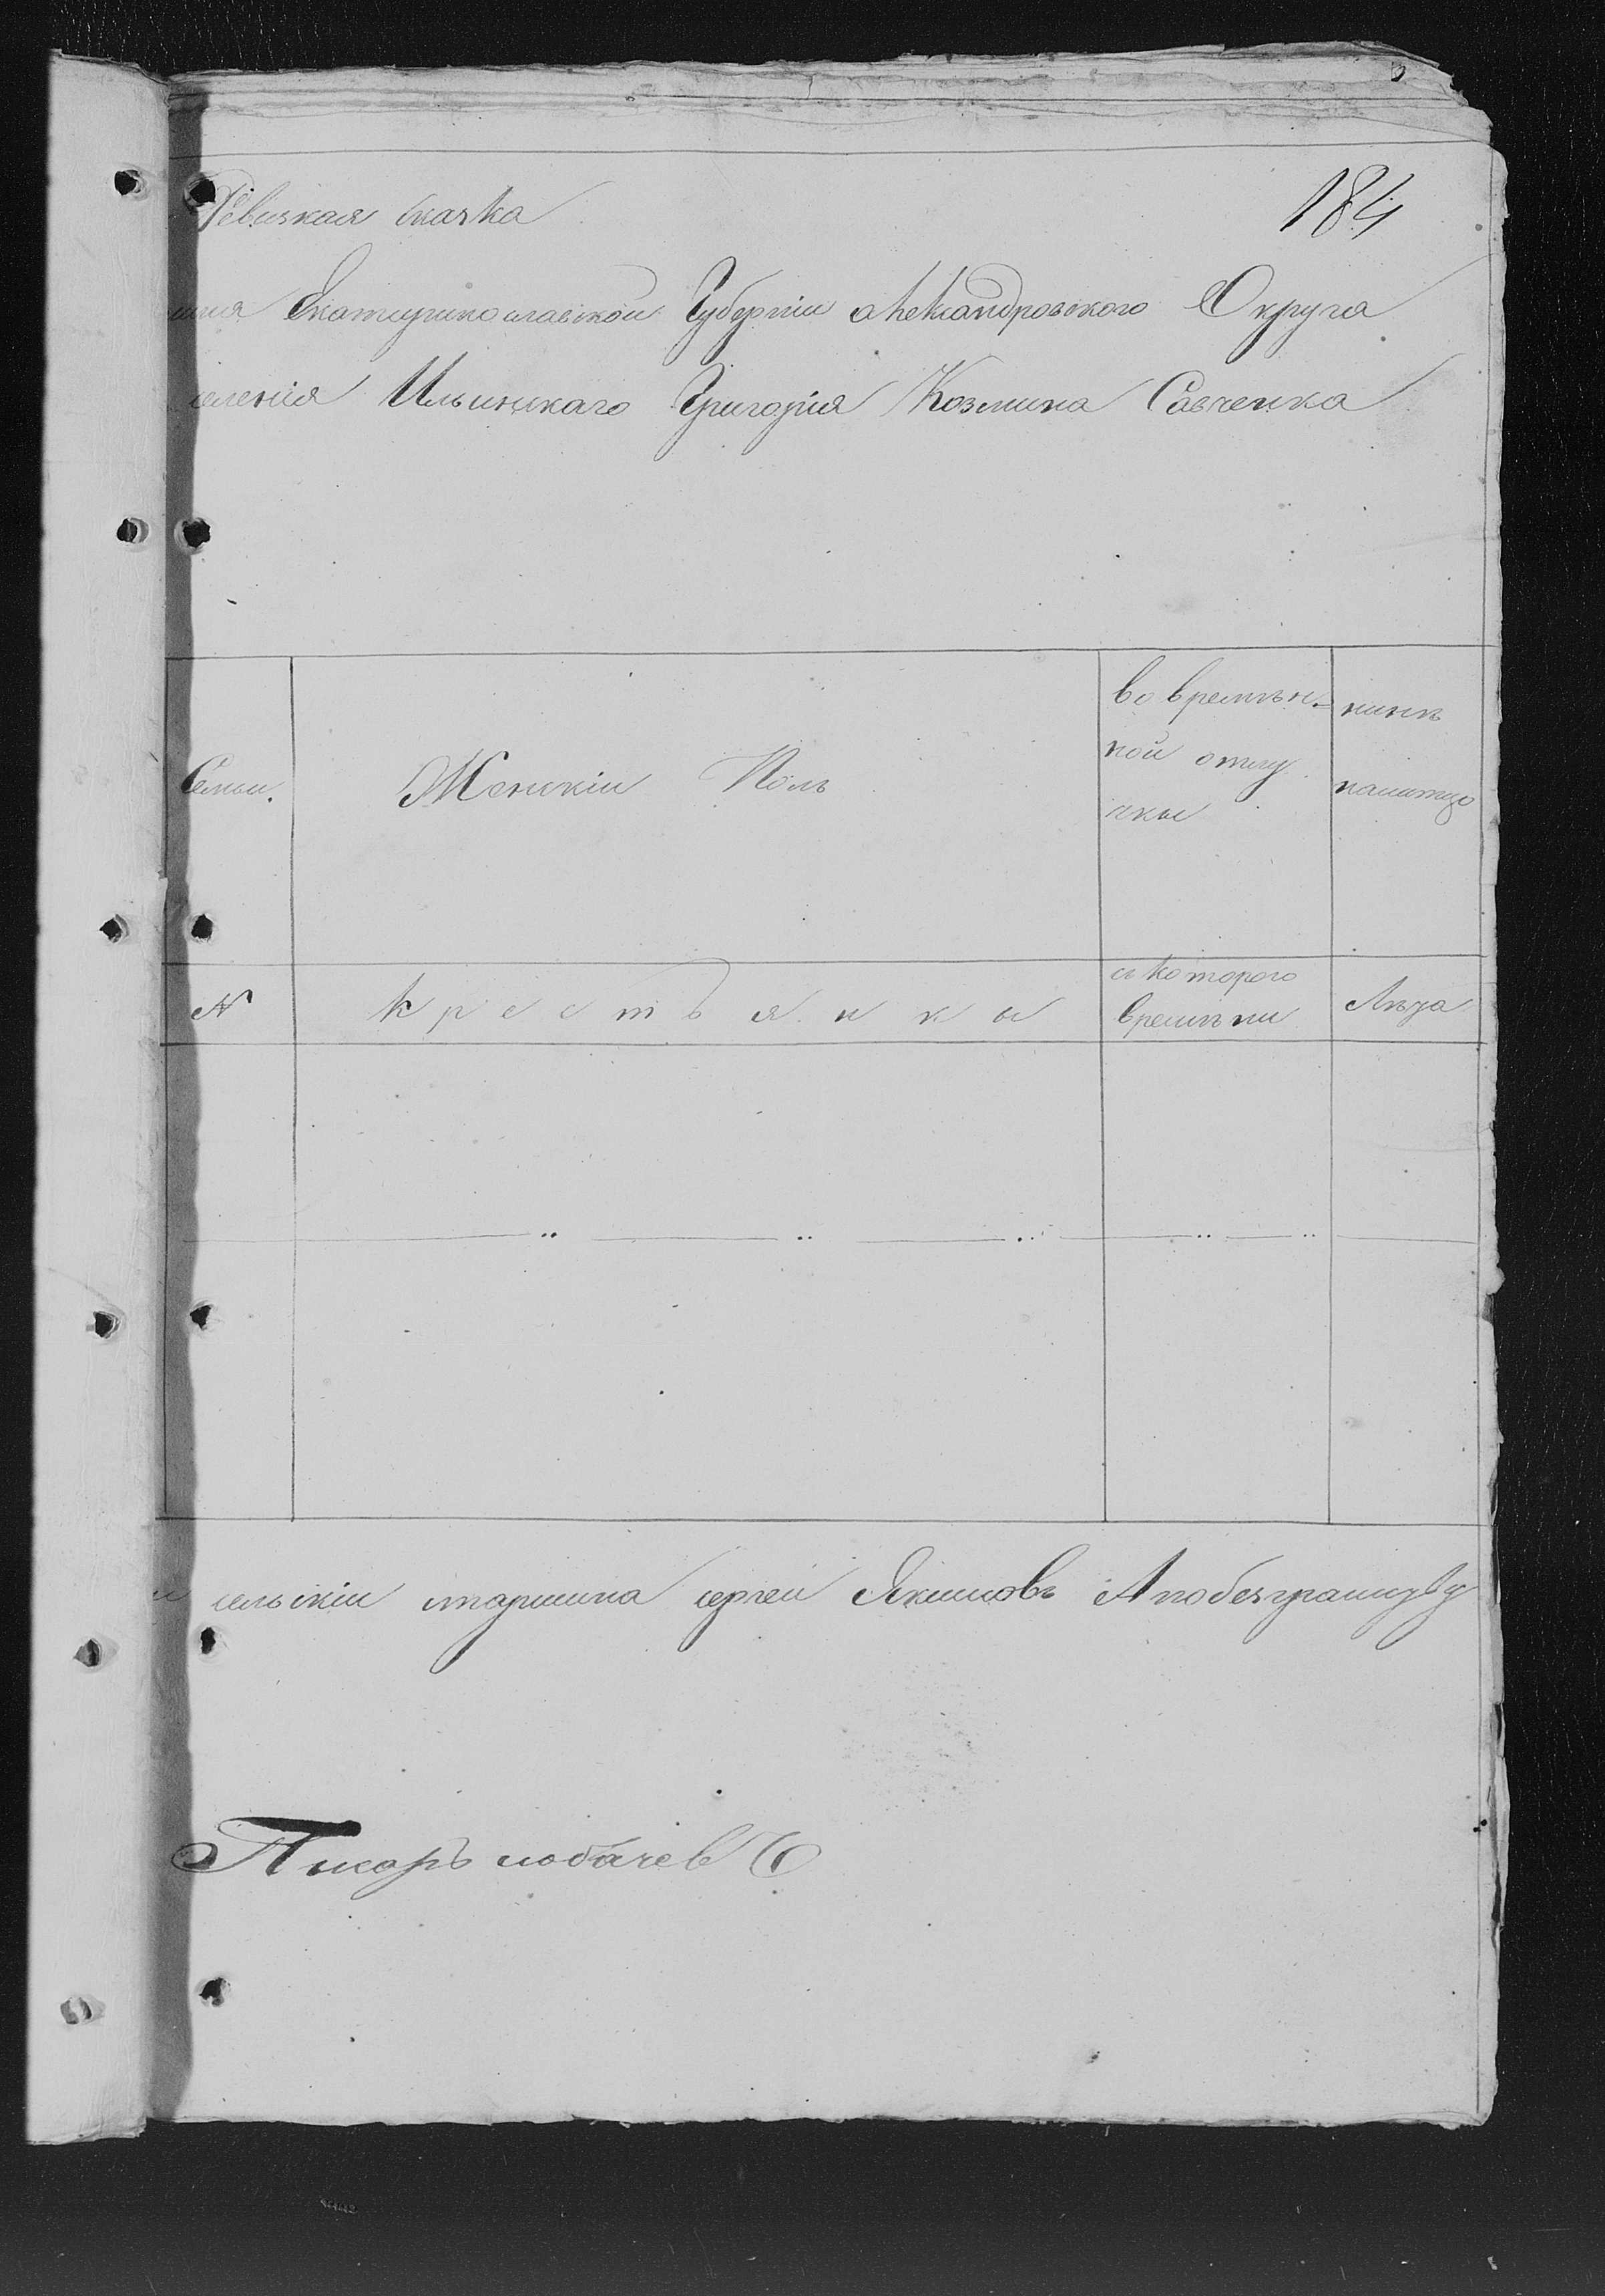 184
Ревизкая скаска
Екатеринославской Губернии александровского Округа
селения Ильинскаго Григория Козмина Савченка
Семьи.
Женскии Полъ
во времѣн-
ной отлу
чкы
нынѣ
налицо
№
крестьянкы
с которого
времѣни
Лѣта
сельскии старшина сергеи Якимовъ
Писарь лобачев